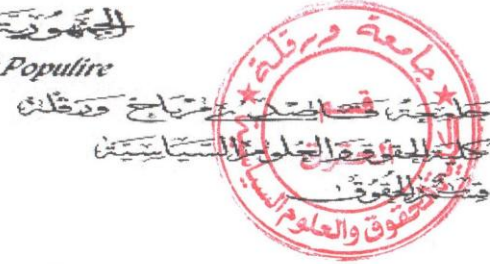 الجمهورية
Populire
جامعة قاصدي مرباح ورقلة
كلية الحقوق والعلوم السياسية
قسم الحقوق
جامعة ورقلة
قسم
الحقوق والعلوم السياسية